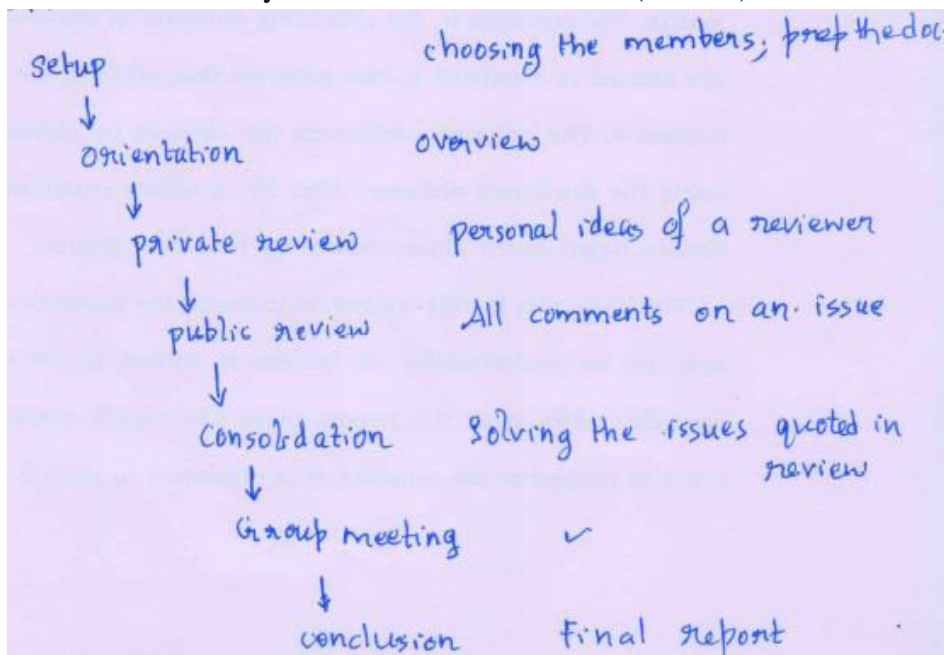 Setup choosing the members, prep the doc
orientation overview
private review personal ideas of a reviewer
public review All comments on an. issue
Consolidation Solving the issues quoted in
review
Group meeting ✓
conclusion Final report